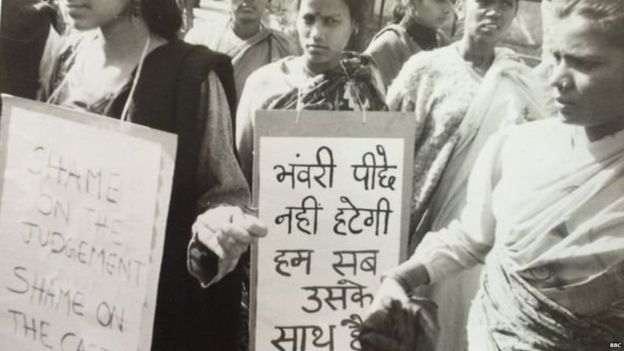 SHAME
ON THE
JUDGEMENT
SHAME ON
THE
भंवरी पीछै
नहीं हटेगी
हम सब
उसके
साथ है
BBC